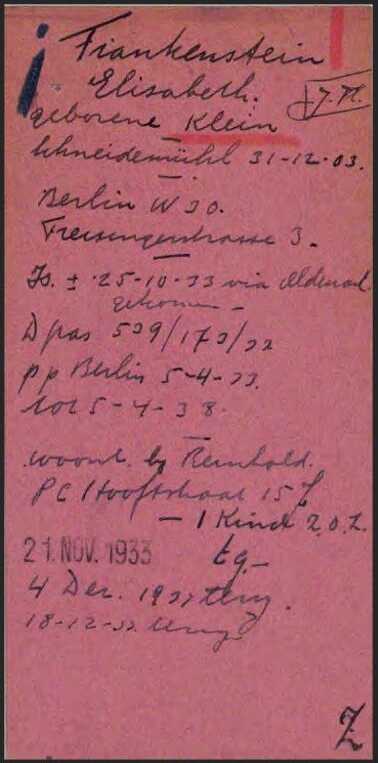 Frankenstein
Elisabeth.
geborene Klein
Schneidemühl 31-12-03.
Berlin W 30.
Freisingerstrasse 3.
Is. ± 25-10-33 via Oldenzaal
gekomen -
D pas 539/173/33
p p Berlin 5-4-33.
tot 5-4-38.
woont by Reinhold.
PC Hooftstraat 15
- 1 Kind Z.O.Z.
21. NOV. 1933
4 Dec. 1933 terug.
18-12-33 terug
Z